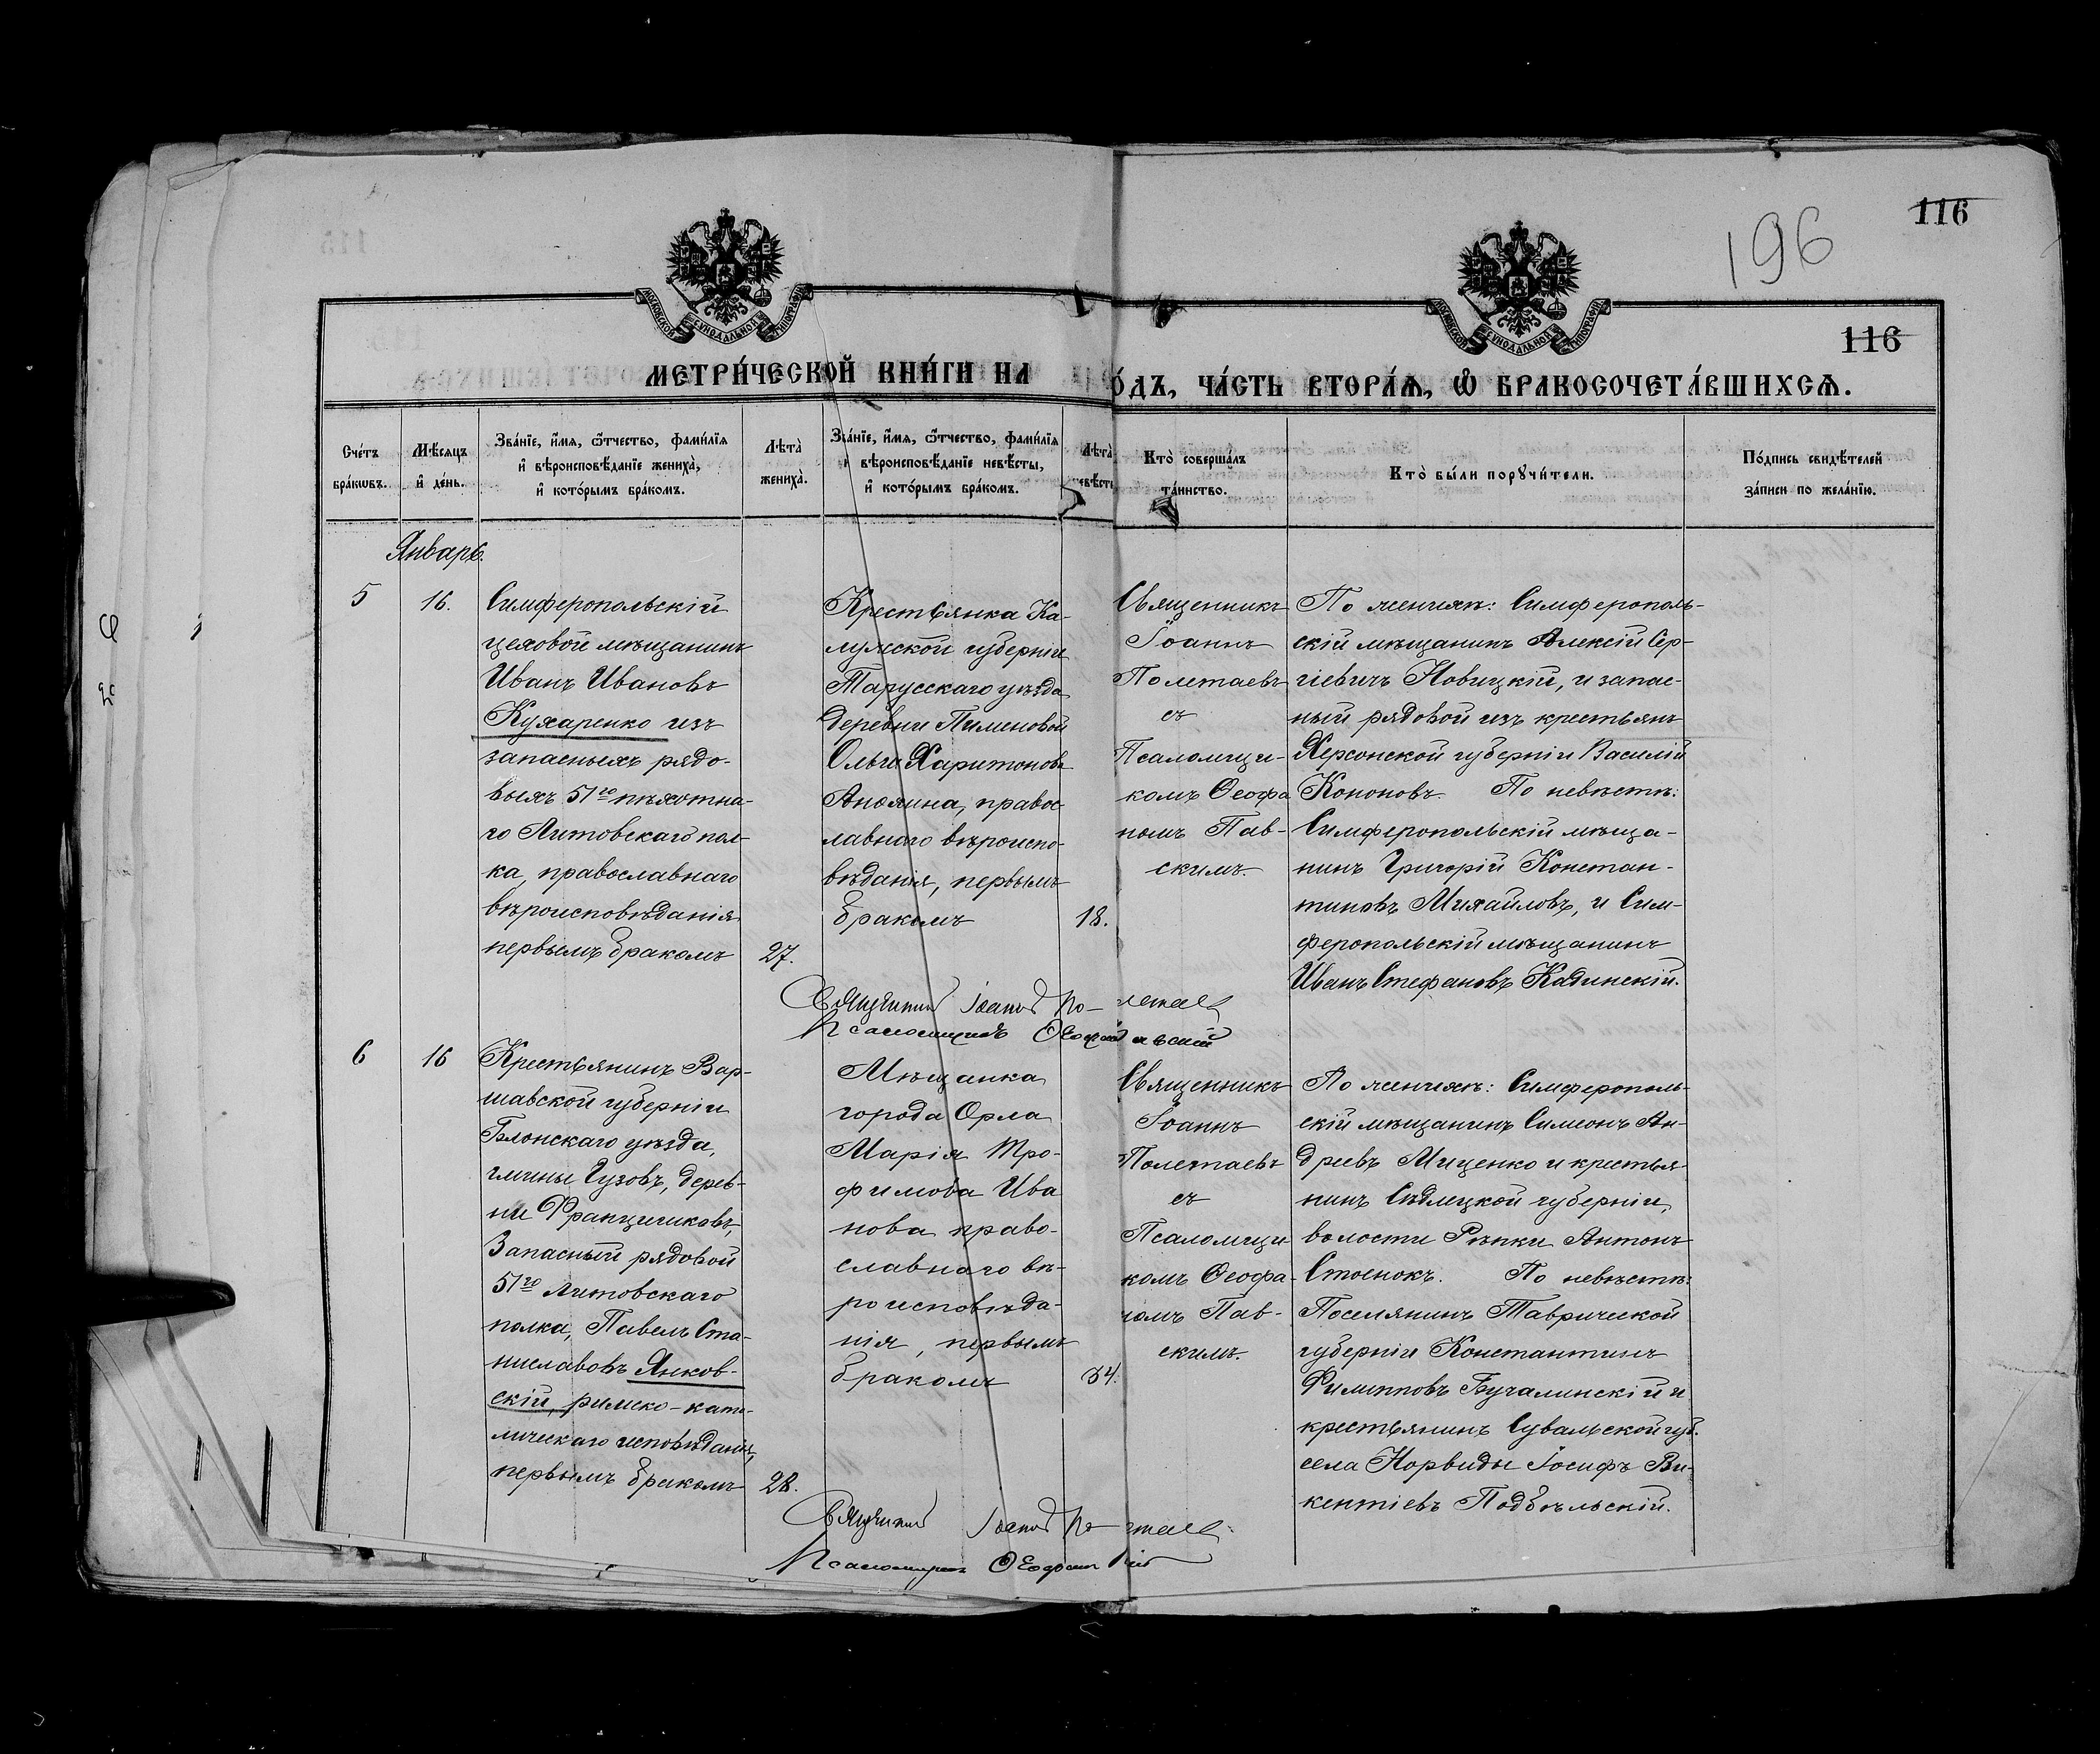 116
196
116
МОСКОВСКОЙ СѴНОДАЛЬНОЙ ТИПОГРАФІИ
МОСКОВСКОЙ СѴНОДАЛЬНОЙ ТИПОГРАФІИ
МЕТРИ́ЧЕСКОЙ КНИ́ГИ НА
О́ДЪ, ЧА́СТЬ ВТОРА́Ѧ, Ѽ БРАКОСОЧЕТА́ВШИХСѦ.
Сче́тъ
бра́кѡвъ.
Мѣ́сѧцъ
и҆ де́нь.
Зва́нїе, и҆́мѧ, ѻ҆́тчество, фами́лїѧ
и҆ вѣроисповѣ́данїе жениха̀,
и҆ кото́рымъ бра́комъ.
Лѣта̀
жениха̀.
Зва́нїе, и҆́мѧ, ѻ҆́тчество, фами́лїѧ
и҆ вѣроисповѣ́данїе невѣ́сты,
и҆ кото́рымъ бра́комъ.
Лѣта̀
невѣ́сты
Кто̀ соверша́лъ
та́инство.
Кто̀ бы́ли порꙋчи́тели.
По́дпись свидѣ́телей
за́писи по жела́нїю.
Январь.
5
16.
Симферопольскій
цеховой мѣщанинъ
Иванъ Ивановъ
Кухаренко изъ
запасныхъ рядо-
выхъ 51го пѣхотна-
го Литовскаго пол-
ка, православнаго
вѣроисповѣданія
первымъ бракомъ
27.
Крестьянка Ка-
лужской губерніи
Тарусскаго уѣзда
деревни Пименовой
Ольга Харитонова
Анохина, правос
лавнаго вѣроиспо-
вѣданія, первымъ
бракомъ
18.
Священникъ
Іоаннъ
Полетаевъ
съ
Псаломщи-
комъ Ѳеофа
номъ Пав-
скимъ
По женихѣ: Симферополь-
скій мѣщанинъ Алексій Сер-
гіевичъ Новицкій, и запас-
ный рядовой изъ крестьянъ
Херсонской губерніи Василій
Кононовъ. По невѣстѣ:
Симферопольскій мѣща-
нинъ Григорій Констан-
тиновъ Михайловъ, и Сим-
феропольскій мѣщанинъ
Иванъ Стефановъ Кадинскій.
Священникъ Іоаннъ Полетаевъ
Псаломщикъ Ѳеофанъ Павскій
6
16
Крестьянинъ Вар-
шавской губерніи
Блонскаго уѣзда,
гмины Гузовъ, дерев-
ни Францишковъ,
Запасный рядовой
51го Литовскаго
полка, Павелъ Ста-
ниславовъ Янков-
скій, римско-като-
лическаго исповѣданія,
первымъ бракомъ
28.
Мѣщанка
города Орла
Марія Тро-
фимова Ива
нова право-
славнаго вѣ-
роисповѣда-
нія, первымъ
бракомъ
34.
Священникъ
Іоаннъ
Полетаевъ
съ
Псаломщи
комъ Ѳеофа-
номъ Пав-
скимъ.
По женихѣ: Симферополь-
скій мѣщанинъ Симеонъ Ан-
дреевъ Миценко и крестья-
нинъ Сѣдлецкой губерніи,
волости Рѣпки Антонъ
Стоенокъ. По невѣстѣ:
Поселянинъ Таврической
губерніи Константинъ
Филипповъ Бучалинскій и
крестьянинъ Сувальской губ.
села Норвиды Іосифъ Ви-
кентіевъ Подбѣльскій.
Священникъ Іоаннъ Полетаевъ
Псаломщикъ Ѳеофанъ